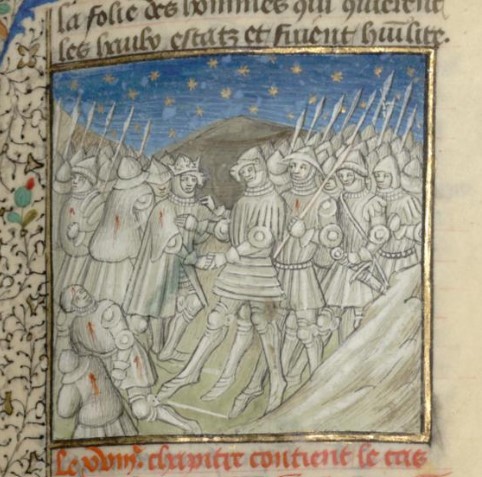 la folie des hommes qui quierent
les haulx estatz et fuient hūilite.
Le chapitre contient le cas